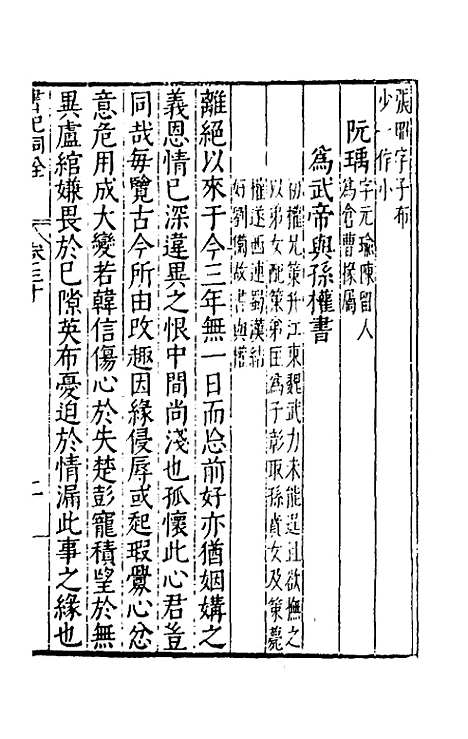 張昭字子布
少一作小
阮瑀字元瑜陳留人
為倉曹掾屬
為武帝與孫權書
初權兄策并江東魏武力未能逞且欲撫之
以弟女配策弟匡為子彰取孫賁女及策薨
權遂西連蜀漢結
好劉備故書與權
離絕以來于今三年無一日而忘前好亦猶姻媾之
義恩情已深違異之恨中間尚淺也孤懷此心君豈
同哉每覽古今所由改趣因緣侵辱或起瑕釁心忿
意危用成大變若韓信傷心於失楚彭寵積望於無
異盧綰嫌畏於已隙英布憂迫於情漏此事之緣也
書記洞詮 卷三十 二